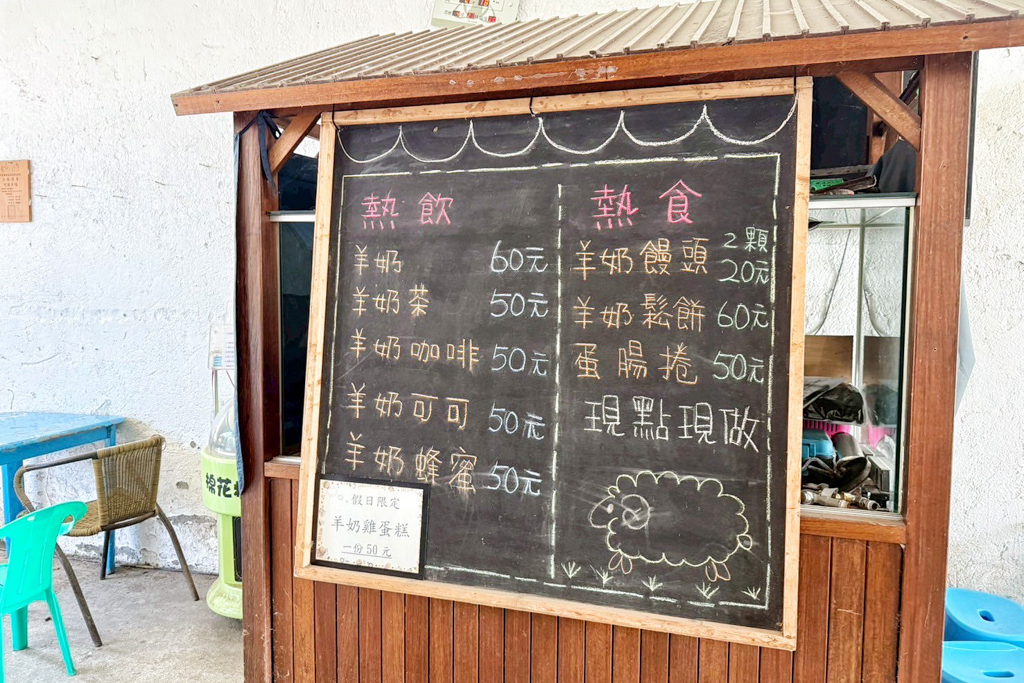 熱飲
羊奶 60元
羊奶茶 50元
羊奶咖啡 50元
羊奶可可 50元
羊奶蜂蜜 50元
假日限定
羊奶雞蛋糕
一份50元
熱食
羊奶饅頭 2顆20元
羊奶鬆餅 60元
蛋腸捲 50元
現點現做
棉花